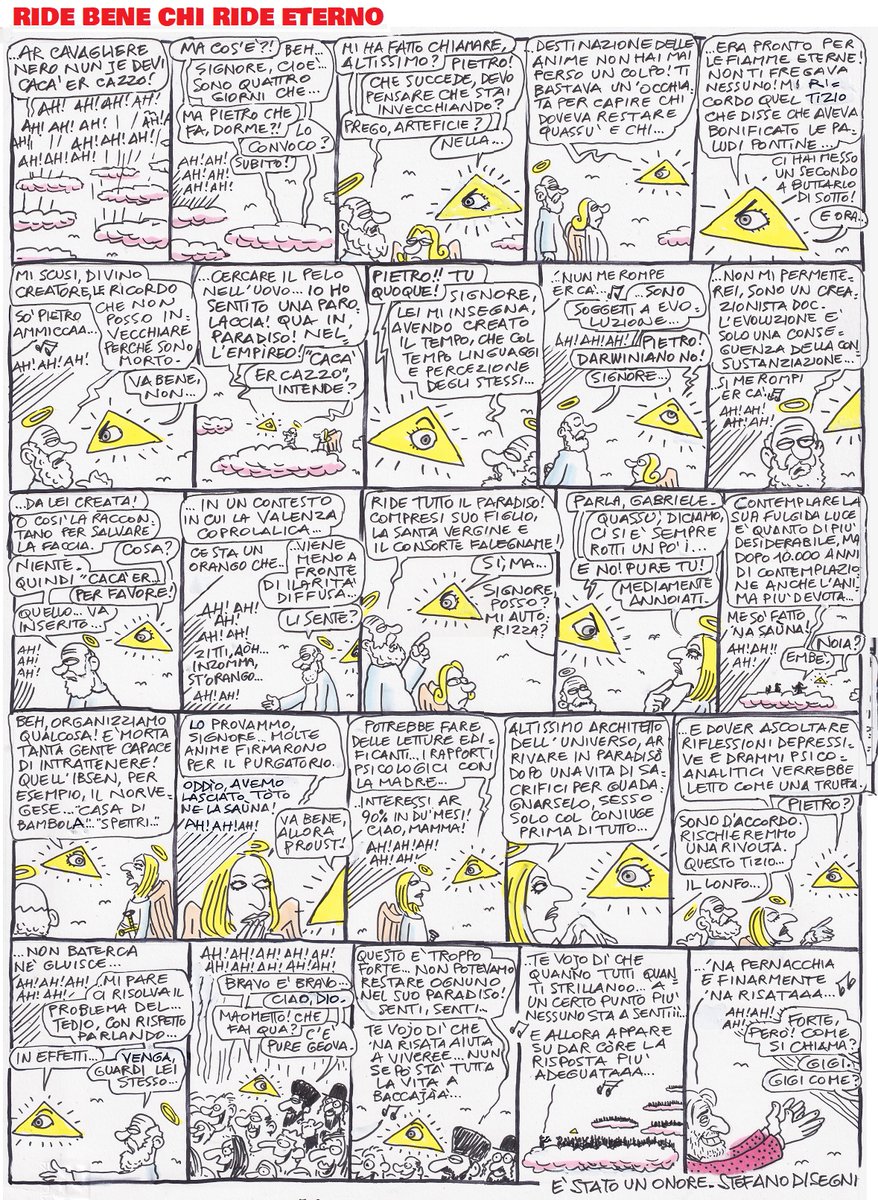 RIDE BENE CHI RIDE ETERNO
...AR CAVAGLIERE
NERO NUN JE DEVI
CACA' ER CAZZO!
AH! AH! AH! AH!
AH! AH! AH! AH!
AH! AH!
AH! AH! AH!
MA COS'E'?!
BEH...
SIGNORE, CIOE'...
SONO QUATTRO
GIORNI CHE...
MA PIETRO CHE
FA, DORME?!
LO
CONVOCO?
SUBITO!
AH! AH!
AH! AH!
AH! AH!
MI HA FATTO CHIAMARE,
ALTISSIMO?
PIETRO!
CHE SUCCEDE, DEVO
PENSARE CHE STAI
INVECCHIANDO?
PREGO, ARTEFICIE?
NELLA...
...DESTINAZIONE DELLE
ANIME NON HAI MAI
PERSO UN COLPO! TI
BASTAVA UN'OCCHIA-
TA PER CAPIRE CHI
DOVEVA RESTARE
QUASSU' E CHI...
...ERA PRONTO PER
LE FIAMME ETERNE!
NON TI FREGAVA
NESSUNO! MI RI-
CORDO QUEL TIZIO
CHE DISSE CHE AVEVA
BONIFICATO LE PA-
LUDI PONTINE...
CI HAI MESSO
UN SECONDO
A BUTTARLO
DI SOTTO!
E ORA...
MI SCUSI, DIVINO
CREATORE, LE RICORDO
CHE NON
POSSO IN-
VECCHIARE
PERCHÉ SONO
MORTO.
SO' PIETRO
AMMICCAA...
AH! AH! AH!
VA BENE,
NON...
...CERCARE IL PELO
NELL'UOVO... IO HO
SENTITO UNA PARO-
LACCIA! QUA IN
PARADISO! NEL-
L'EMPIREO!
"CACA'
ER CAZZO",
INTENDE?
PIETRO!! TU
QUOQUE!
SIGNORE,
LEI MI INSEGNA,
AVENDO CREATO
IL TEMPO, CHE COL
TEMPO LINGUAGGI
E PERCEZIONE
DEGLI STESSI...
'NUN ME ROMPE
ER CA'...
...SONO
SOGGETTI A EVO-
LUZIONE...
AH! AH! AH!
PIETRO!
DARWINIANO NO!
SIGNORE...
...NON MI PERMETTE-
REI, SONO UN CREA-
ZIONISTA DOC.
L'EVOLUZIONE E'
SOLO UNA CONSE-
GUENZA DELLA CON
SUSTANZIAZIONE...
SI ME ROMPI
ER CA'
AH! AH!
AH! AH!
...DA LEI CREATA!
O COSI' LA RACCON-
TANO PER SALVARE
LA FACCIA.
COSA?
NIENTE.
QUINDI "CACA' ER...
PER FAVORE!
QUELLO... VA
INSERITO...
AH!
AH!
AH!
AH!
...IN UN CONTESTO
IN CUI LA VALENZA
COPROLALICA...
CE STA UN
ORANGO CHE...
...VIENE
MENO A
FRONTE
DI ILARITA'
DIFFUSA...
LI SENTE?
AH! AH!
AH!
AH! AH!
ZITTI, AOH...
INZOMMA,
ST'ORANGO...
AH! AH!
RIDE TUTTO IL PARADISO!
COMPRESI SUO FIGLIO,
LA SANTA VERGINE E
IL CONSORTE FALEGNAME!
SI', MA...
SIGNORE,
POSSO?
MI AUTO-
RIZZA?
PARLA, GABRIELE.
QUASSU', DICIAMO,
CI SI E' SEMPRE
ROTTI UN PO' I...
E NO! PURE TU!
MEDIAMENTE
ANNOIATI.
CONTEMPLARE LA
SUA FULGIDA LUCE
E' QUANTO DI PIU'
DESIDERABILE, MA
DOPO 10.000 ANNI
DI CONTEMPLAZIO
NE ANCHE L'ANI-
MA PIU' DEVOTA...
ME SO' FATTO
'NA SAUNA!
AH! AH!!
AH! AH!
NOIA?
EMBE.
BEH, ORGANIZZIAMO
QUALCOSA! E' MORTA
TANTA GENTE CAPACE
DI INTRATTENERE!
QUELL'IBSEN, PER
ESEMPIO, IL NORVE-
GESE... "CASA DI
BAMBOLA"... "SPETTRI"...
LO PROVAMMO,
SIGNORE... MOLTE
ANIME FIRMARONO
PER IL PURGATORIO.
ODDÌO, AVEMO
LASCIATO TOTO
NE LA SAUNA!
AH! AH! AH!
VA BENE,
ALLORA
PROUST!
POTREBBE FARE
DELLE LETTURE EDI-
FICANTI... I RAPPORTI
PSICOLOGICI CON
LA MADRE...
INTERESSI AR
90% IN DU' MESI!
CIAO, MAMMA!
AH! AH! AH!
AH! AH!
ALTISSIMO ARCHITETTO
DELL'UNIVERSO, AR
RIVARE IN PARADISO
DOPO UNA VITA DI SA-
CRIFICI PER GUADA-
GNARSELO, SESSO
SOLO COL CONIUGE
PRIMA DI TUTTO...
...E DOVER ASCOLTARE
RIFLESSIONI DEPRESSI-
VE E DRAMMI PSICO-
ANALITICI VERREBBE
LETTO COME UNA TRUFFA.
PIETRO?
SONO D'ACCORDO.
RISCHIEREMMO
UNA RIVOLTA.
QUESTO TIZIO...
IL LONFO...
...NON BATERCA
NE' GLUISCE...
AH! AH! AH!
AH! AH!
MI PARE
CI RISOLVA IL
PROBLEMA DEL
TEDIO, CON RISPETTO
PARLANDO...
IN EFFETTI...
VENGA,
GUARDI LEI
STESSO...
AH! AH! AH! AH! AH!
AH! AH! AH! AH! AH!
BRAVO E' BRAVO...
CIAO, DIO.
MAOMETTO! CHE
FAI QUA?
C'E'
PURE GEOVA.
QUESTO E' TROPPO
FORTE... NON POTEVAMO
RESTARE OGNUNO
NEL SUO PARADISO!
SENTI, SENTI...
TE VOJO DI' CHE
'NA RISATA AIUTA
A VIVEREE... NUN
SE PO STA' TUTTA
LA VITA A
BACCAJAA...
...TE VOJO DI' CHE
QUANNO TUTTI QUAN
TI STRILLANOO... A
UN CERTO PUNTO PIU'
NESSUNO STA A SENTIII...
E ALLORA APPARE
SU DAR CÒRE LA
RISPOSTA PIU'
ADEGUATAAA...
...'NA PERNACCHIA
E FINARMENTE
'NA RISATAAA...
AH! AH!
AH! AH!
FORTE,
PERO'! COME
SI CHIAMA?
GIGI.
GIGI COME?
E' STATO UN ONORE. STEFANO DISEGNI